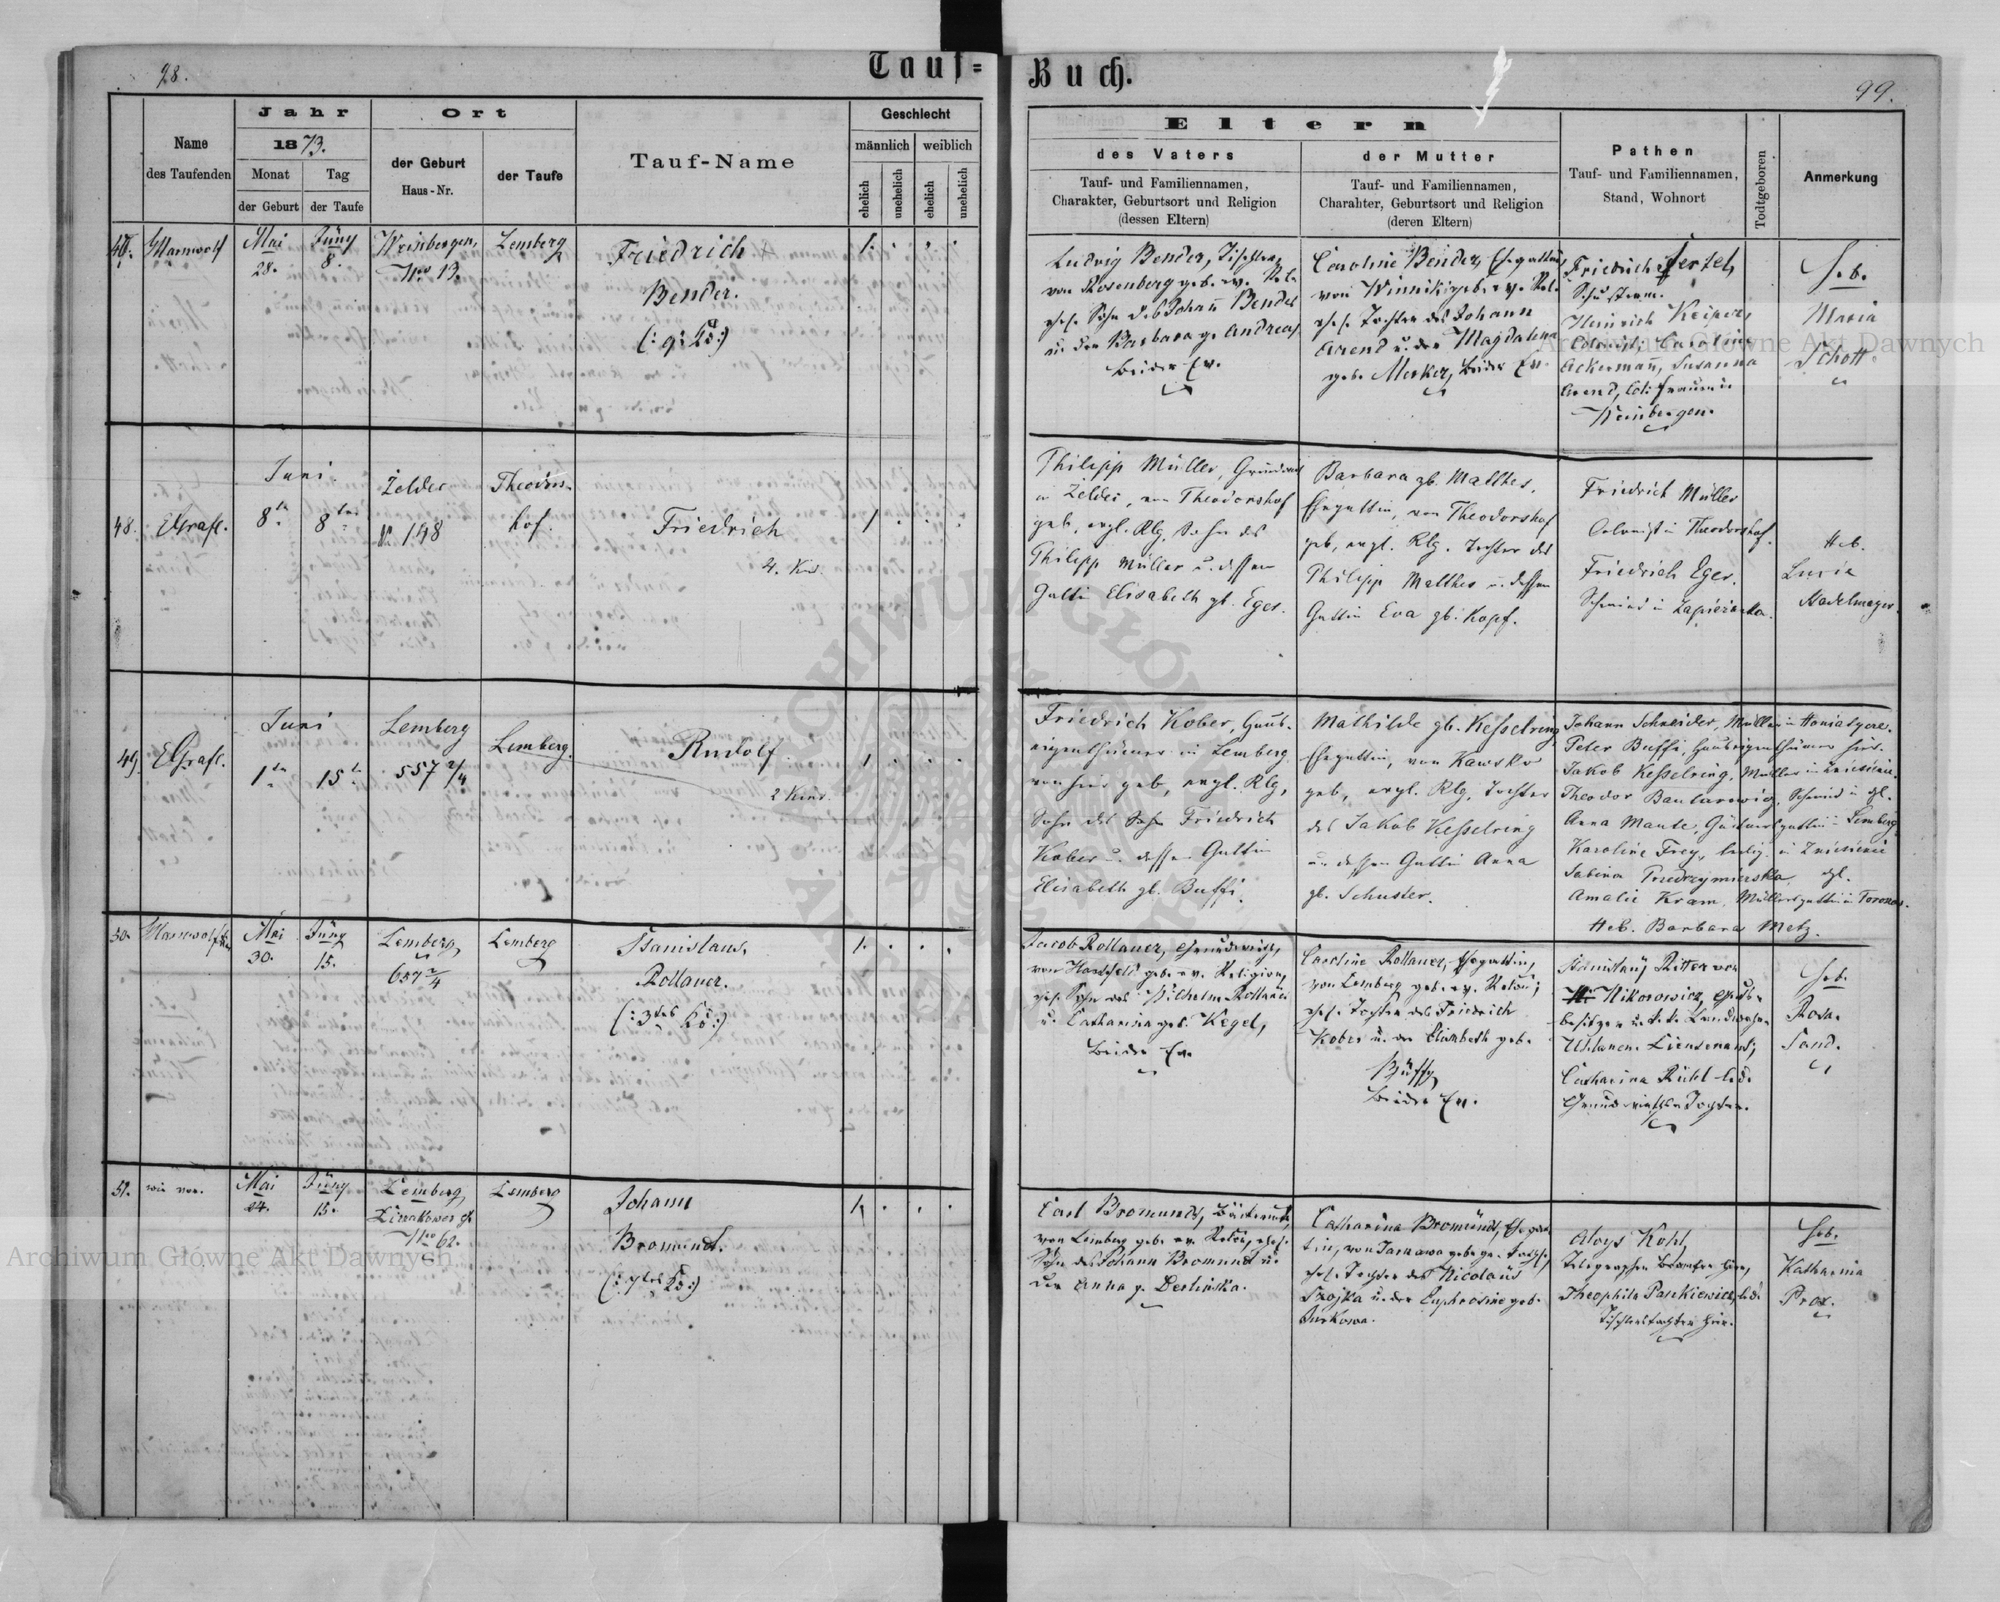 98.
Tauf=
Name
des Taufenden
Jahr
1873.
Monat
der Geburt
Tag
der Taufe
Ort
der Geburt
Haus-Nr.
der Taufe
Tauf-Name
Geschlecht
männlich
weiblich
ehelich
unehelich
ehelich
unehelich
47.
Mai
28.
Júny
8.
Weinbergen,
Nro 13.
Lemberg
Friedrich
Bender.
1.
48.
Juni
8
8
Zeldec
N 148
Theodors-
hof.
Friedrich
4. Kind
1
49.
Juni
1
15
Lemberg
557 2/4
Lemberg.
Rudolf
2 Kind.
1
50.
Mai
30.
Júny
15.
Lemberg
657 2/4
Lemberg
Stanislaus.
Rollauer.
1.
51.
wie vor.
Mai
24.
Júny
15.
Lemberg,
Nro 62.
Lemberg
Johann
Bromund.
1.
Buch.
99.
Eltern
des Vaters
Tauf- und Familiennamen,
Charakter, Geburtsort und Religion
(dessen Eltern)
der Mutter
Tauf- und Familiennamen,
Charahter, Geburtsort und Religion
(deren Eltern)
Pathen
Tauf- und Familiennamen,
Stand, Wohnort
Todtgeboren
Anmerkung
Ludwig Bender, Tischler
von Rosenberg geb. ev. Rel.
ehel. Sohn des Johann Bender
u. der Barbara g. Andreas
beide Ev.
Caroline Bender, Ehegattin,
von Winniki geb. ev. Rel.
ehel. Tochter des Johann
Arend u. der Magdalena
geb. Merker, beide Ev.
Friedrich Hertel,
Heinrich Keiper,
Colonist, Caroline
Ackermann, Susanna
Arend, Col. Frauen in
Weinbergen.
Heb.
Maria
Schott.
Philipp Müller, Grundwirt
in Zeldec, von Theodorshof
geb, evgl. Rlg, Sohn des
Philipp Müller u. dessen
Gattin Elisabeth gb. Eger.
Barbara gb. Matthes,
Ehegattin, von Theodorshof
geb, evgl. Rlg. Tochter des
Philipp Matthes u. dessen
Gattin Eva gb. Kopf.
Friedrich Müller
Colonist in Theodorshof.
Friedrich Eger.
Schmied in Zapiezanka.
Heb.
Lucia
Friedrich Kober, Haus-
eigenthümer in Lemberg
von hier geb, evgl. Rlg,
Sohn des Friedrich
Kober u. dessen Gattin
Elisabeth gb. Buffi.
Mathilde gb. Kesselring
Ehegattin, von Kawsko
geb, evgl. Rlg, Tochter
des Jakob Kesselring
u. dessen Gattin Anna
gb. Schuster.
Johann Schneider, Müller in
Peter Buffi, Hauseigenthümer hier.
Jakob Kesselring, Müller in Zniesienie.
Theodor Schmied in
Anna Gärtnersgattin in Lemberg.
Karoline Frey, ledig in Zniesienie
Sabina
Amalie Kram, Müllersgattin in
Heb. Barbara Metz.
Jacob Rollauer, Grundwirth,
von geb. ev. Religion,
ehel. Sohn des Wilhelm Rollauer
u. Catharina geb. Kegel,
beide Ev.
Caroline Rollauer, Ehegattin,
von Lemberg geb. ev. Relion;
ehel. Tochter des Friedrich
Kober u. der Elisabeth geb.
Büffy
beide Ev.
Stanislaus Ritter von
Nikorowicz, Guts-
besitzer u. k. k. Landwehr-
Uhlanen-Lieutenant;
Catharina Rühl led.
Grundwirths Tochter.
Heb.
Rosa.
Sand.
Carl Bromund,
von Lemberg geb. ev. Relion, ehel.
Sohn des Johann Bromund u.
der Anna g.
Catharina Bromund, Ehegat-
tin, von
ehel. Tochter des Nicolaus
u. der Euphrosine geb.
Aloys Kohl,
Telegraphen Beamter hier,
Theophila Paszkiewicz, led.
Tischlerstochter hier.
Heb.
Katharina
Prox.
Archiwum Główne Akt Dawnych
Archiwum Główne Akt Dawnych